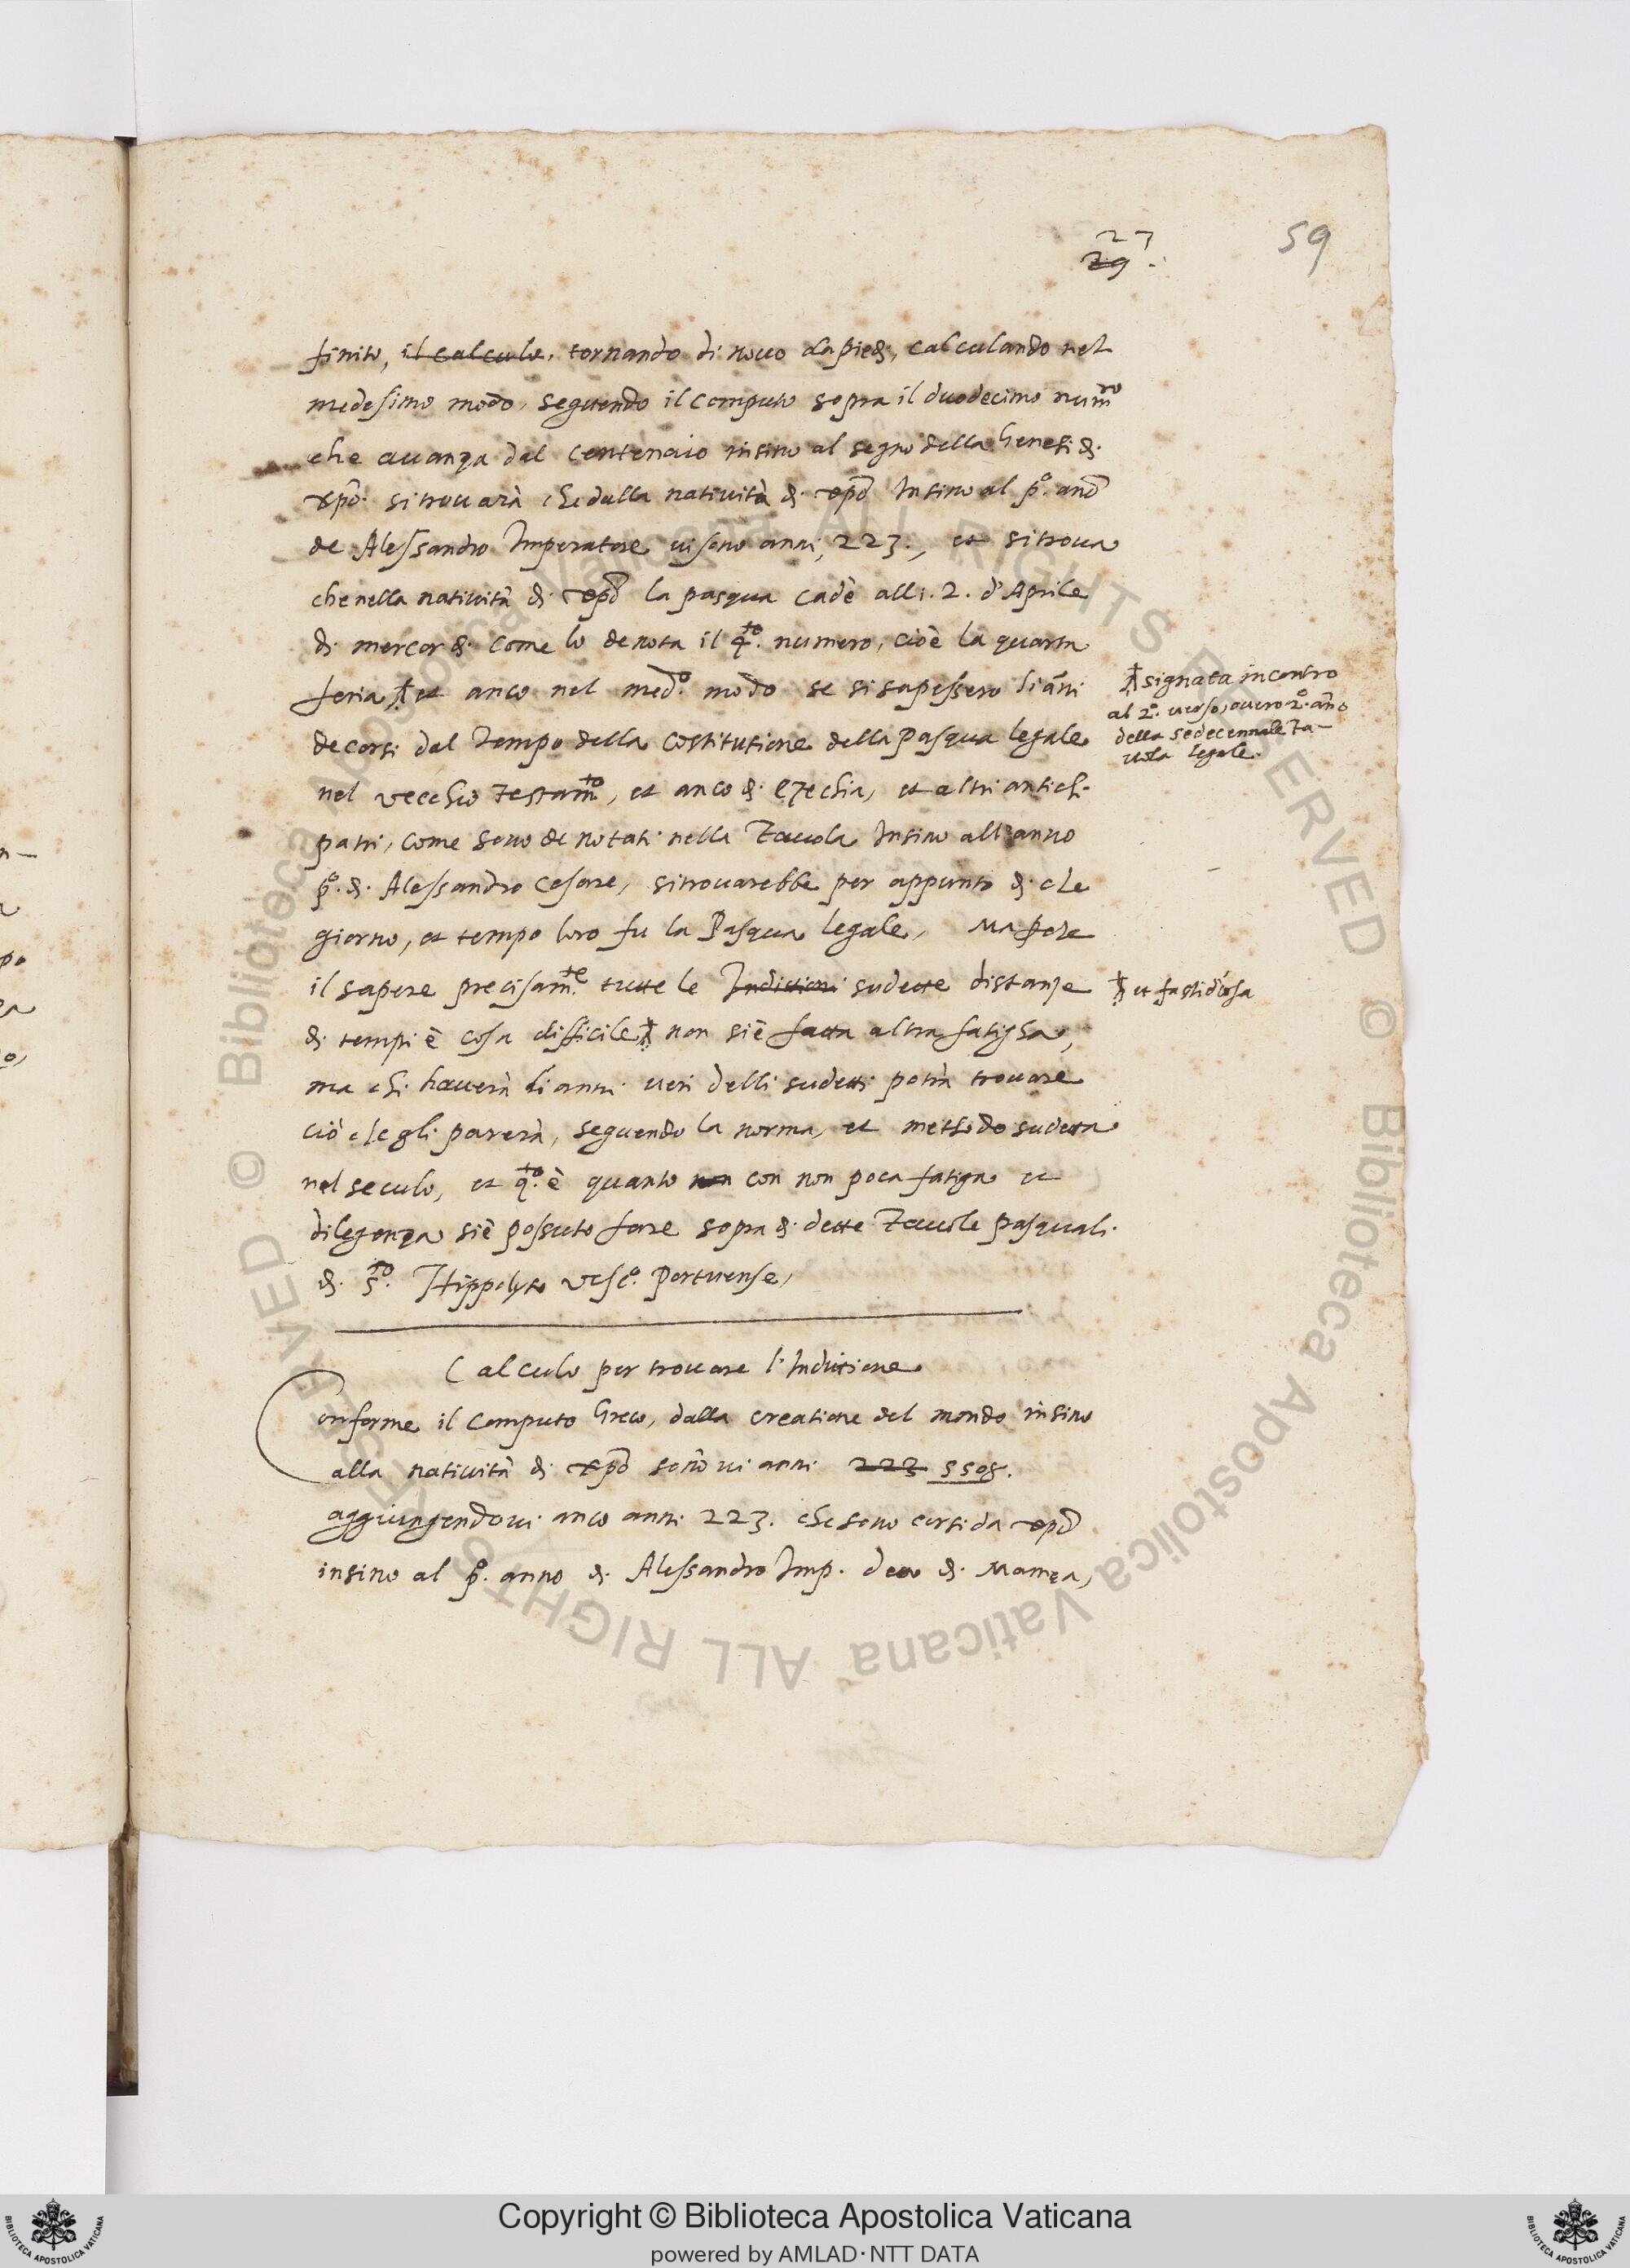 23
29.
59
finito, il calculo, tornando di novo da piedi, calculando nel
medesimo modo, seguendo il computo sopra il duodecimo num.ro
che avanza dal centenaio insino al segno della Genesi di
xpo. si trovarà che dalla natività di xpo insino al p.º anno
de Alessandro Imperatore vi sono anni, 223., et si trova
che nella natività di xpo la pasqua cadè alli. 2. d'Aprile
di mercordi come lo denota il q.to numero, cioè la quarta
feria et anco nel med.º modo se si sapessero li anni
signata incontro
al 2.º verso, overo 2.º anno
della sedecennale Ta-
vola legale.
decorsi dal tempo della costitutione della Pasqua legale
nel vecchio testam.to, et anco di Ezechia, et altri antichi
patri, come sono denotati nella Tavola insino all'anno
p.º di Alessandro Cesare, si trovarebbe per appunto di che
giorno, et tempo loro fu la Pasqua legale, Ma perche
il sapere precisam.te tutte le Indittioni sudette distanze
et fastidiosa
di tempi è cosa difficile non si è fatta altra fatigha,
ma chi haverà li anni veri delli sudetti potrà trovare
ciò che gli parerà, seguendo la norma, et methodo sudetta
nel seculo, et q.to è quanto non con non poca fatiga et
diligenza si è possuto fare sopra di dette Tavole pasquali
di s.to Hippolyto vesc.º Portuense,
Calculo per trovare l'Inditione
Conforme il computo Greco, dalla creatione del mondo insino
alla natività di xpo sono vi anni 223 5508.
aggiungendovi anco anni 223. che sono corsi da xpo
insino al p.º anno di Alessandro Imp. detto di Mamea,
Copyright © Biblioteca Apostolica Vaticana
powered by AMLAD·NTT DATA